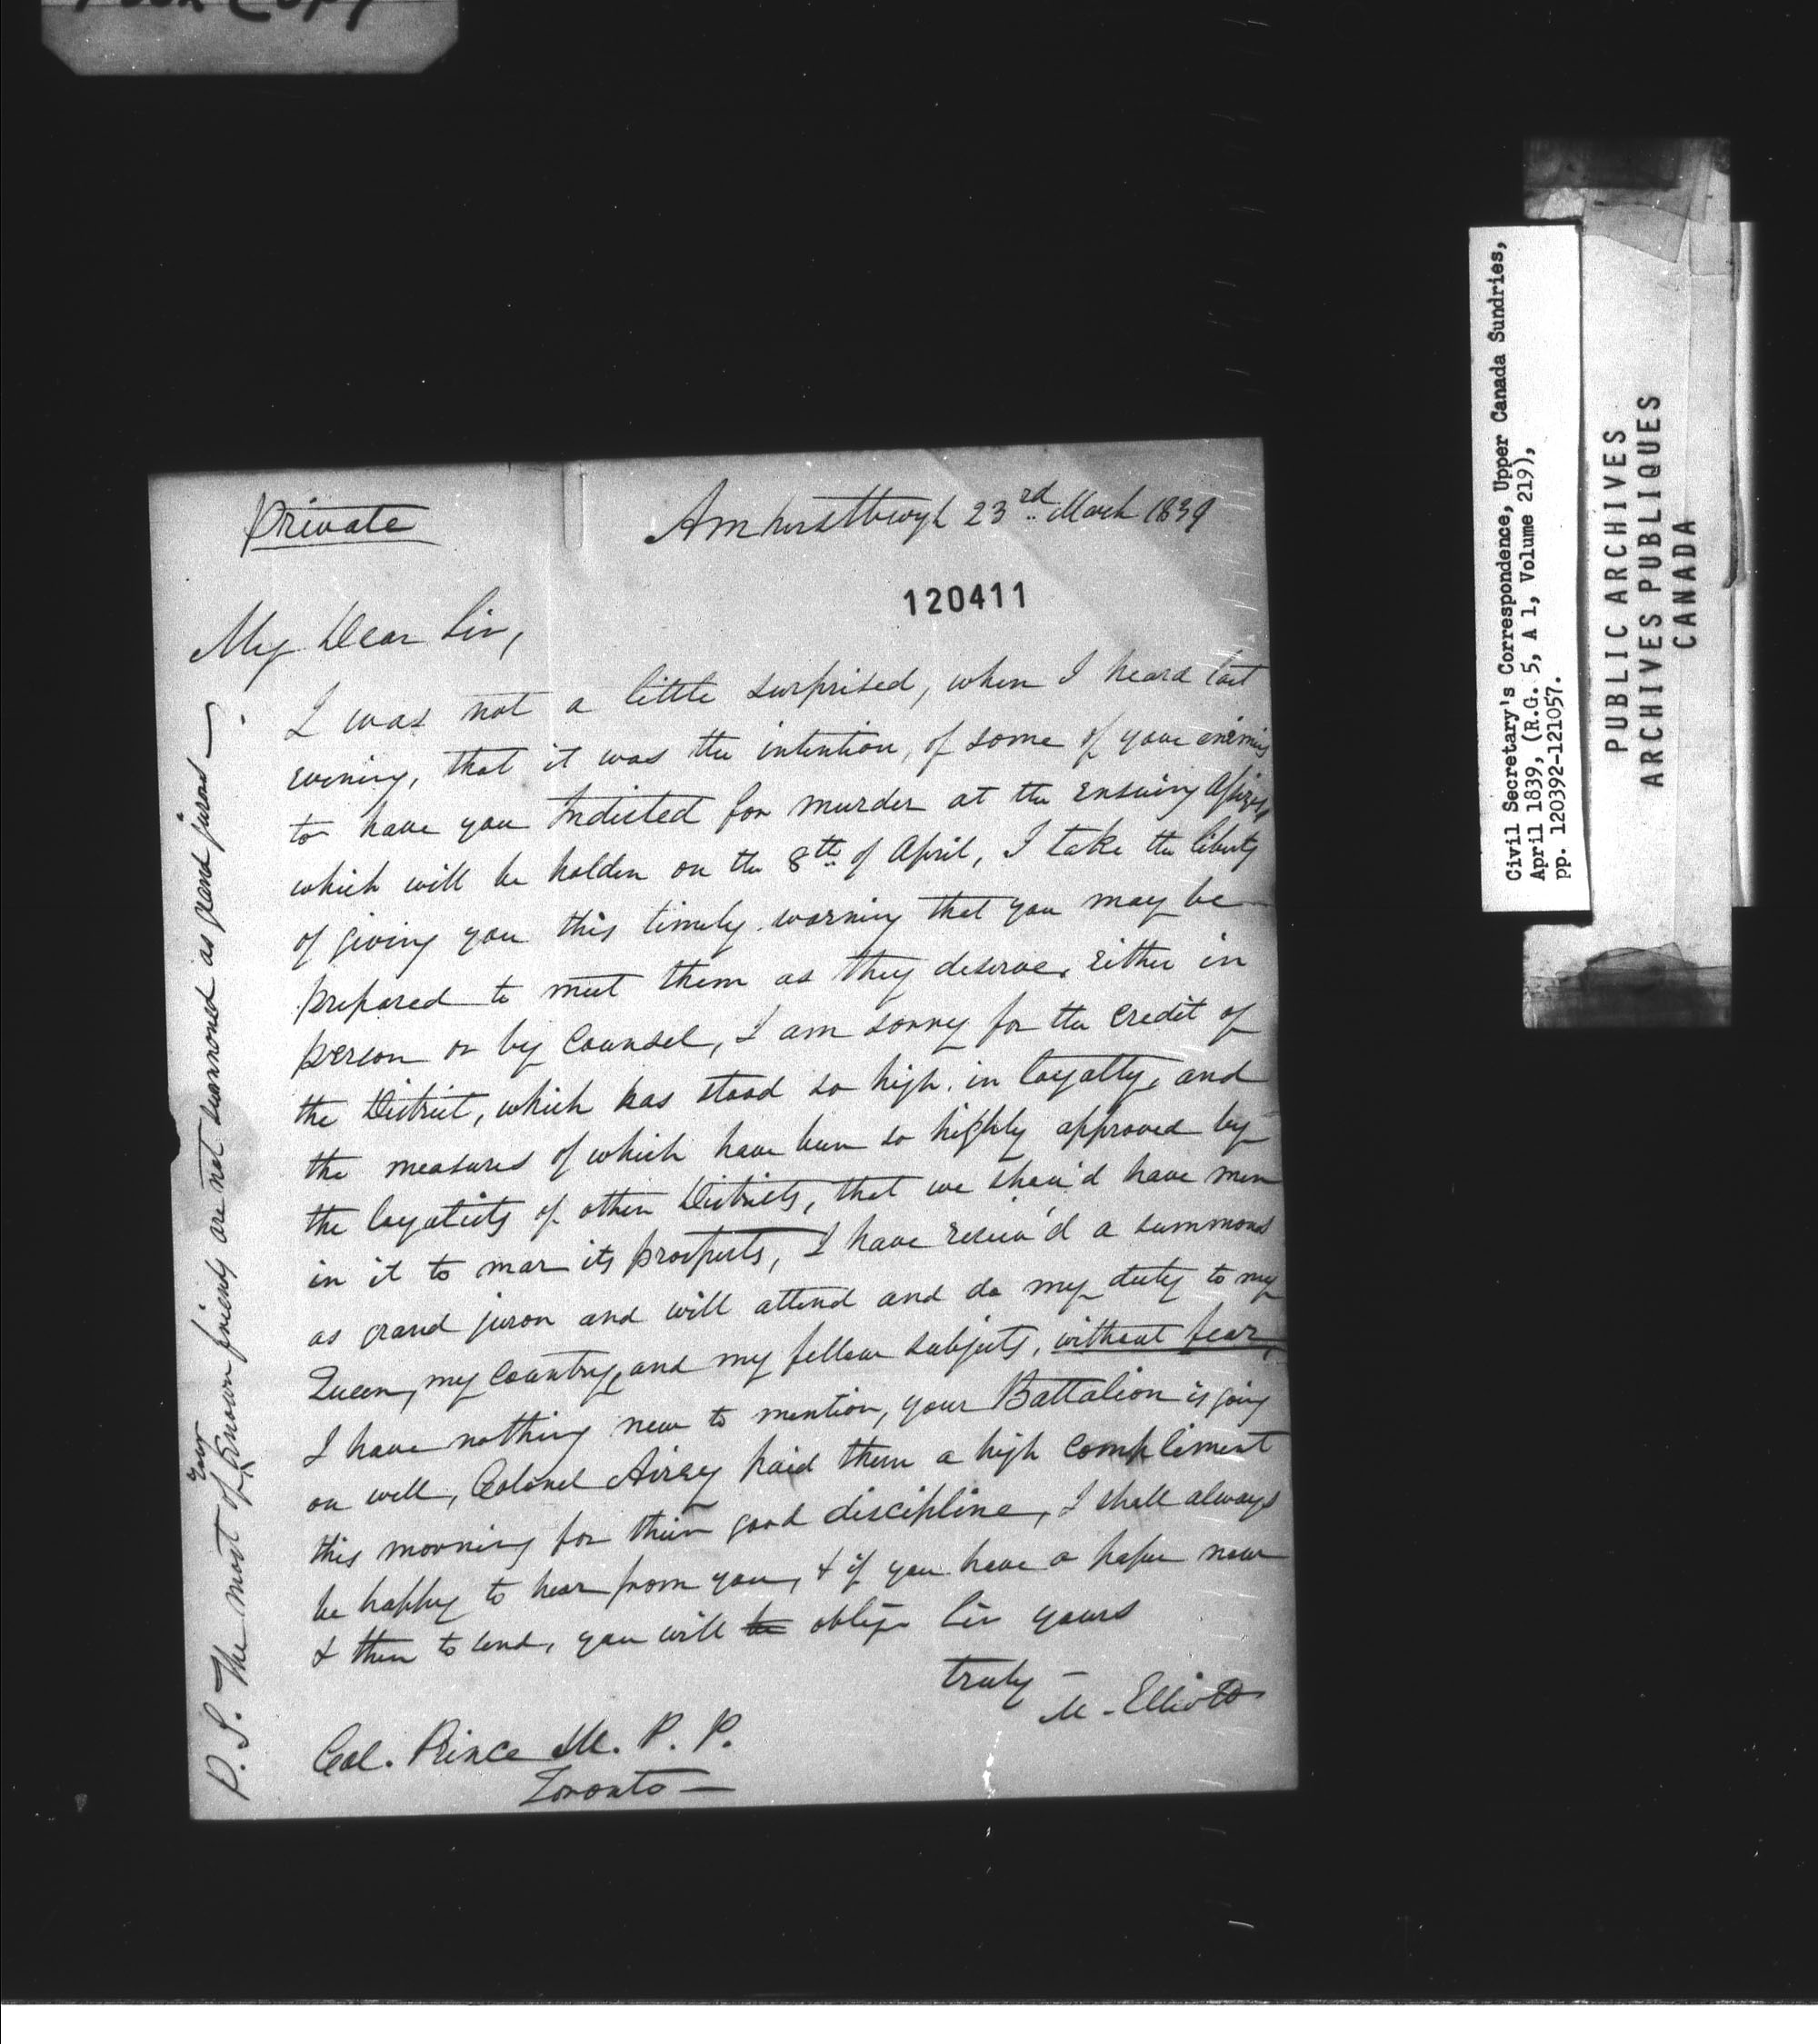 Poor Copy
Private
Amherstburgh 23rd March 1839
120411
My Dear Sir,
I was not a little surprised, when I heard last
evening, that it was the intention, of some of your enimies
to have you Indicted for murder at the ensuing Assizes,
which will be holden on the 8th of April, I take the liberty
of giving you this timely warning that you may be
prepared to meet them as they deserve, either in
person or by Counsel, I am sorry for the credit of
the District, which has stood so high in loyalty, and
the measures of which have been so highly approved by
the loyalists of other Districts, that we shou'd have men
in it to mar its prospects, I have receiv'd a summons
as grand juror and will attend and do my duty to my
Queen, my Country, and my fellow subjects, without fear,
I have nothing new to mention, your Battalion is going
on well, Colonel Airey paid them a high compliment
this morning for their good discipline, I shall always
be happy to hear from you, & if you have a paper now
& then to lend, you will be oblige Sir yours
truly —
M. Elliott
Col. Prince M. P. P.
Toronto —
P.S. The most of your known friends are not summoned as grand jurors —
Civil Secretary's Correspondence, Upper Canada Sundries,
April 1839, (R.G. 5, A 1, Volume 219),
pp. 120392-121057.
PUBLIC ARCHIVES
ARCHIVES PUBLIQUES
CANADA